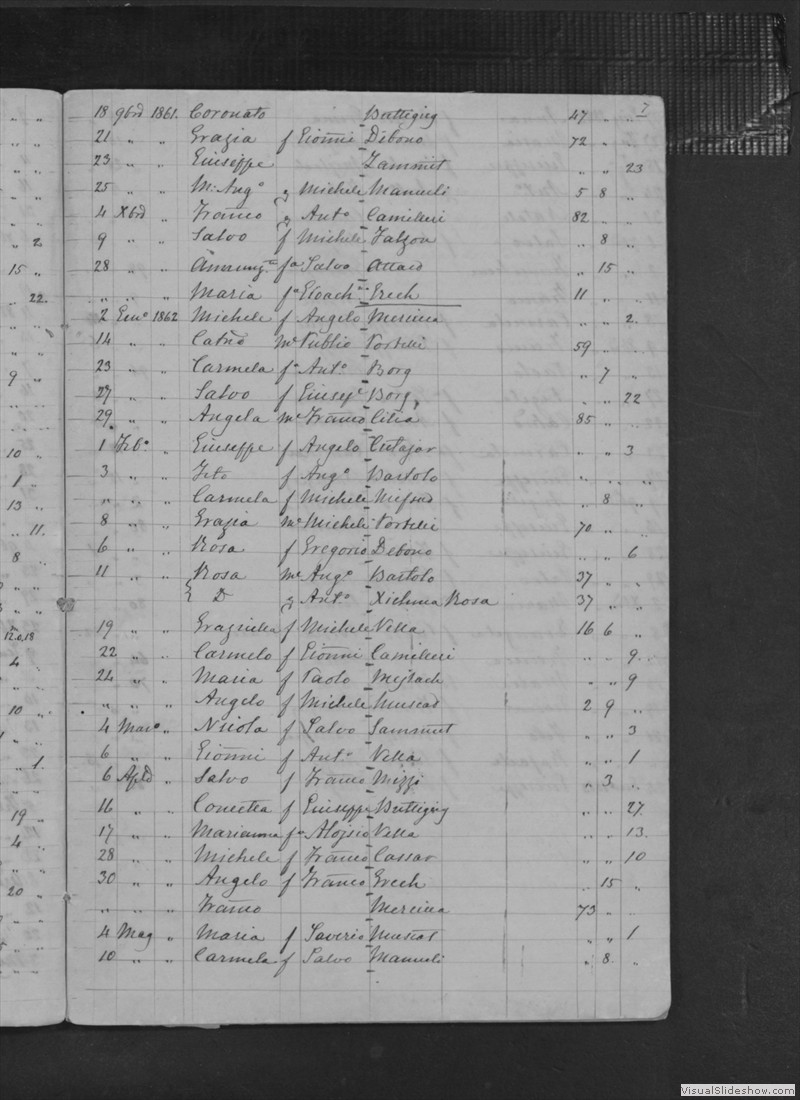 7
18 9bre 1861. Coronato Buttigieg 47 " "
21 " " Grazia f Gionni Debono 72 " "
23 " " Giuseppe Zammit " " 23
25 " " M. Ang° Michele Manueli 5 8 "
4 Xbre " Franco Ant° Camilleri 82 " "
9 " " Salvo f Michele Falzon " 8 "
28 " " Annunz fa Salvo Attard " 15 "
" " " Maria fa Gioach Grech 11 " "
2 Gen° 1862 Michele f Angelo Mercieca " " 2.
14 " " Publio Portelli 59 " "
23 " " Carmela fa Ant° Borg " 7 "
27 " " Salvo f Giusep Borg " " 22
29 " " Angela me Franco Cilia 85 " "
1 Feb° " Giuseppe f Angelo Cutajar " " 3
3 " " Zito f Ang° Bartolo " " "
" " " Carmela f Michele Mifsud " 8 "
8 " " Grazia me Michele Portelli 70 " "
6 " " Rosa f Gregorio Debono " " 6
11 " " Rosa me Ang° Bartolo 37 " "
D Ant° Rosa 37 " "
19 " " Graziella f Michele Vella 16 6 "
22 " " Carmelo f Gionni Camilleri " " 9.
24 " " Maria f Paolo " " 9
" " " Angelo f Michele Muscad 2 9 "
4 Maro " Nicola f Salvo Sammut " " 3
6 " " Gionni f Ant° Vella " " 1
6 Aple " Salvo f Franco Mizzi " 3 "
16 " " Concetta f Giuseppe Buttigieg " " 27.
17 " " Marianna fa Alojsio Vella " " 13.
28 " " Michele f Franco Cassar " " 10
30 " " Angelo f Franco Grech " 15 "
" " " Franco Mercieca 73 " "
4 Mag " Maria f Saverio Muscat " " 1
10 " " Carmela f Salvo Manueli " 8. "
" 2
15 "
" 22.
9 "
10 "
1 "
13 "
" 11.
8 "
12.0.18
4 "
10 "
" 1.
19 "
4 "
20 "
VisualSlideshow.com